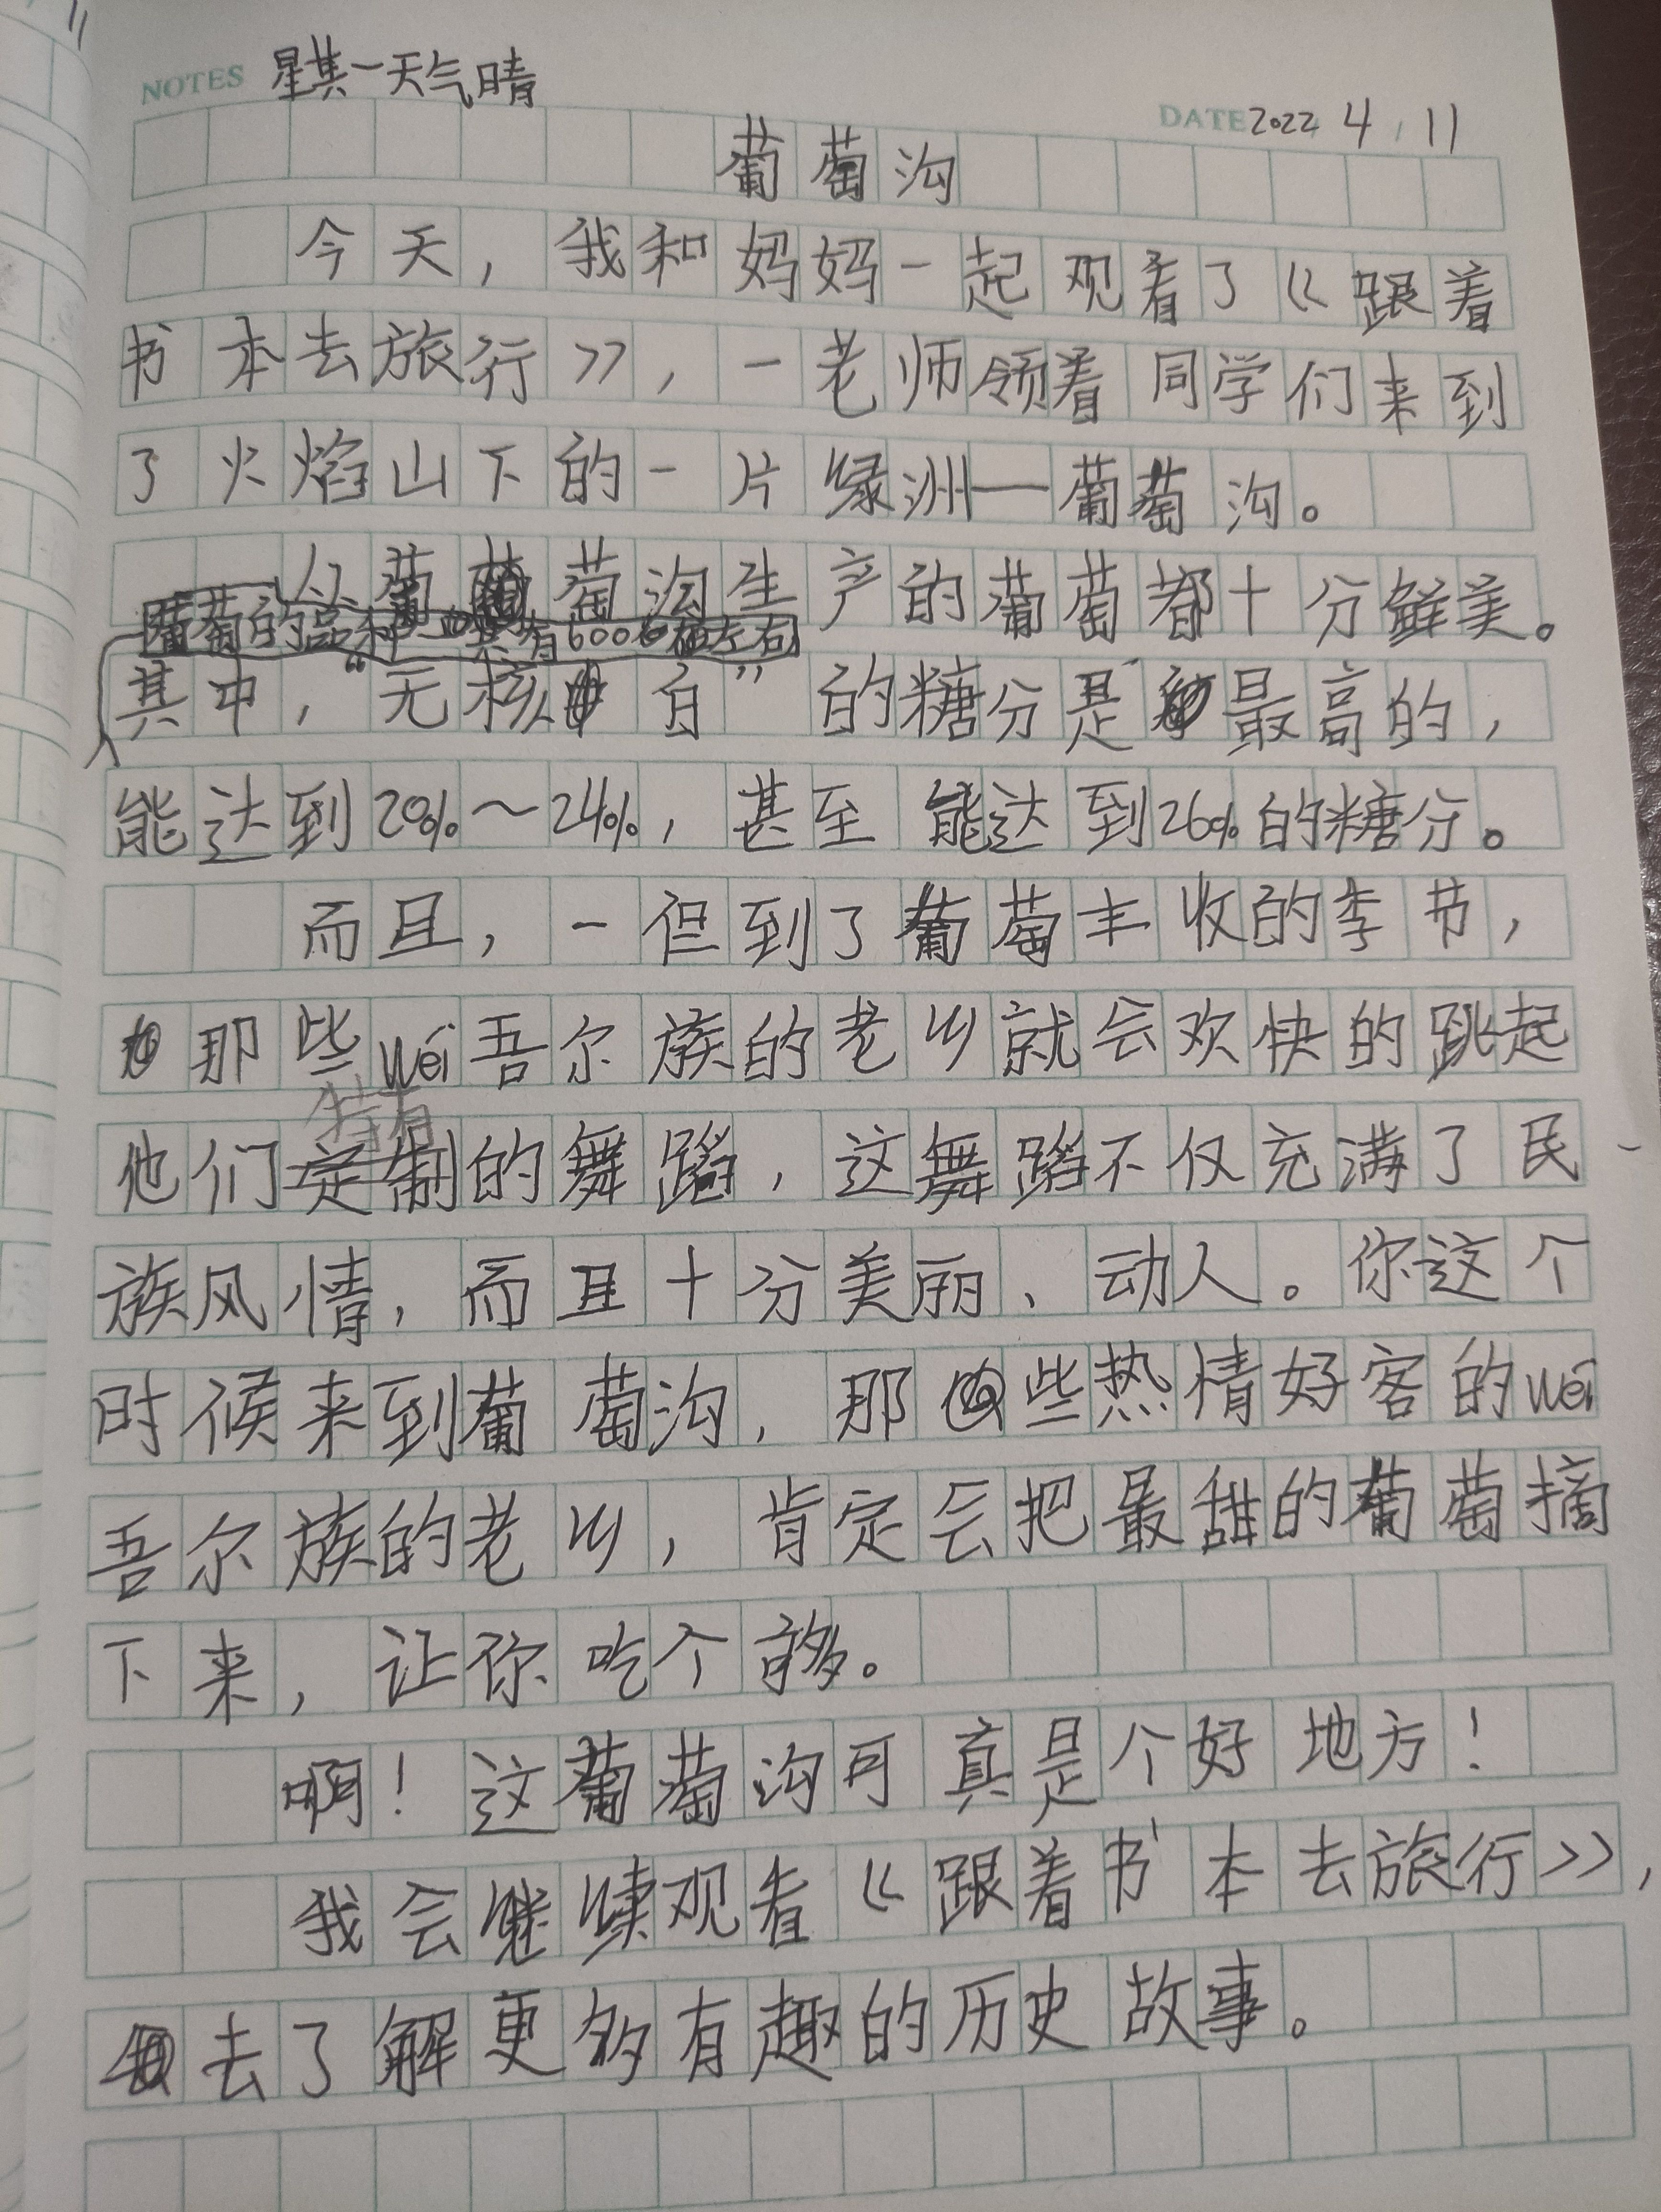 星其一天气晴
NOTES
DATE 2022 4 11
葡萄沟
今天，我和妈妈一起观看了《跟着
书本去旅行》，一老师领着同学们来到
了火焰山下的一片绿洲——葡萄沟。
葡萄沟生产的葡萄都十分鲜美。
葡萄的品种一共有600种左右
其中，“无核白”的糖分是最高的，
能达到20%～24%，甚至能达到26%的糖分。
而且，一但到了葡萄丰收的季节，
那些wéi吾尔族的老乡就会欢快的跳起
特有
他们定制的舞蹈，这舞蹈不仅充满了民
族风情，而且十分美丽、动人。你这个
时候来到葡萄沟，那些热情好客的wéi
吾尔族的老乡，肯定会把最甜的葡萄摘
下来，让你吃个够。
啊！这葡萄沟可真是个好地方！
我会继续观看《跟着书本去旅行》，
去了解更多有趣的历史故事。